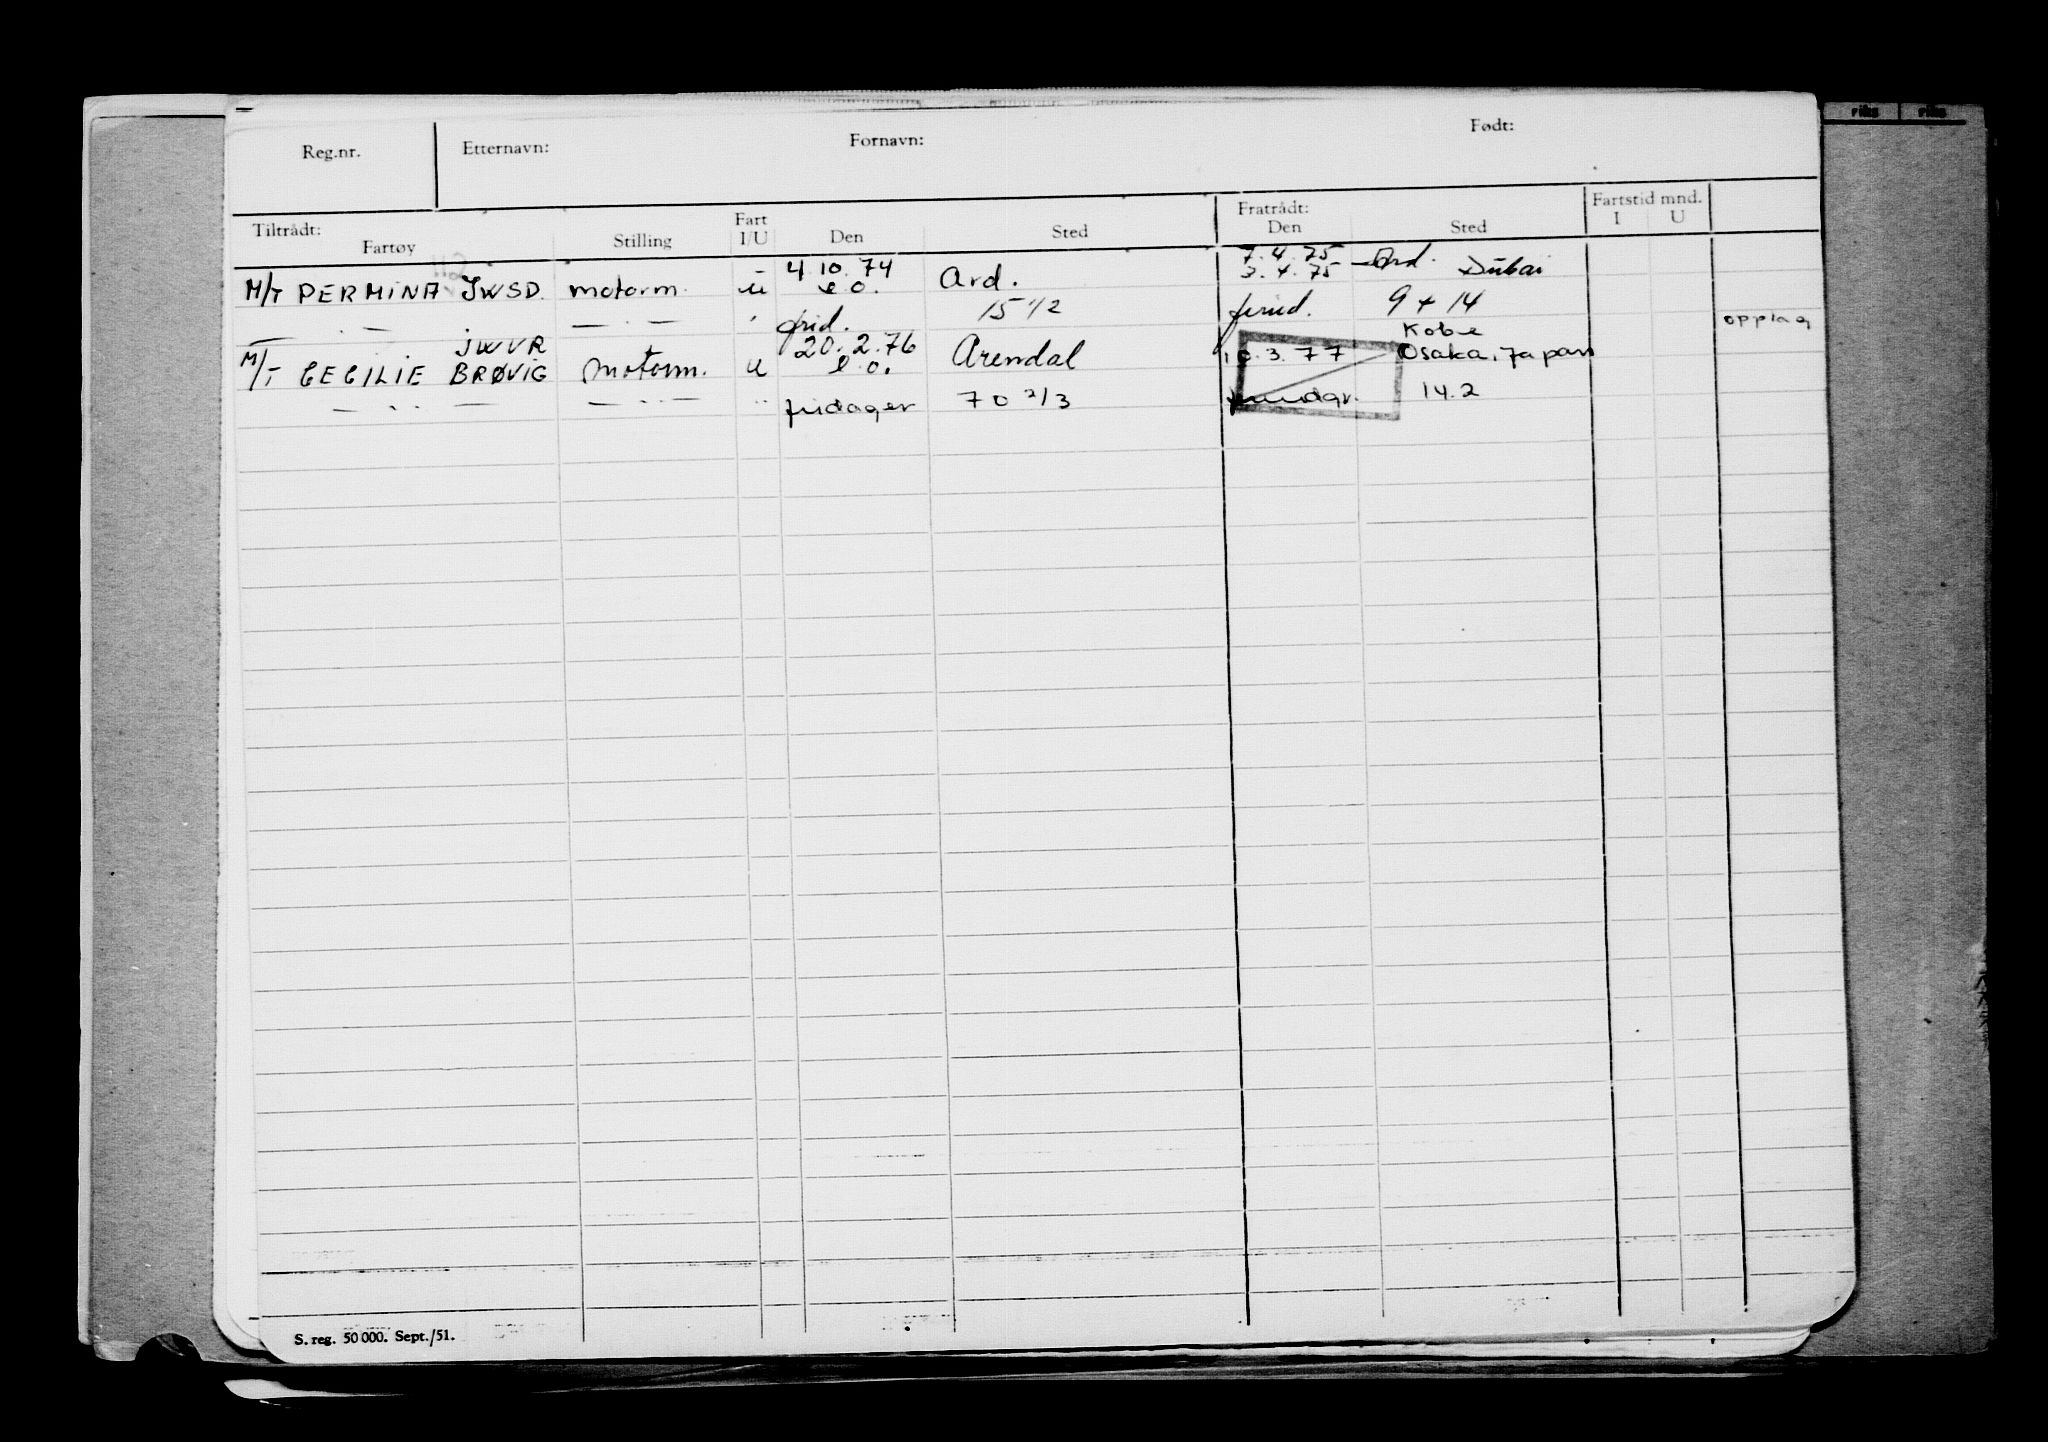 Reg.nr. Etternavn: Fornavn: Født:
Tiltrådt: Fartøy Stilling Fart I/U Den Sted Fratrådt: Den Sted Fartstid mnd. I U
4.10.74 7.4.75 Ard.
M/T PERMINA JWSD. motorm. u e.o. Ard. 3.4.75 Dubai
— . — — . — frid. 15 1/2 frid. 9 + 14
JWVR 20.2.76 Kobe opplag
M/T CECILIE BRØVIG motorm. u e.o. Arendal 10.3.77 Osaka, Japan
— .. — — . — " fridager 70 2/3 14.2
S. reg. 50 000. Sept./51.